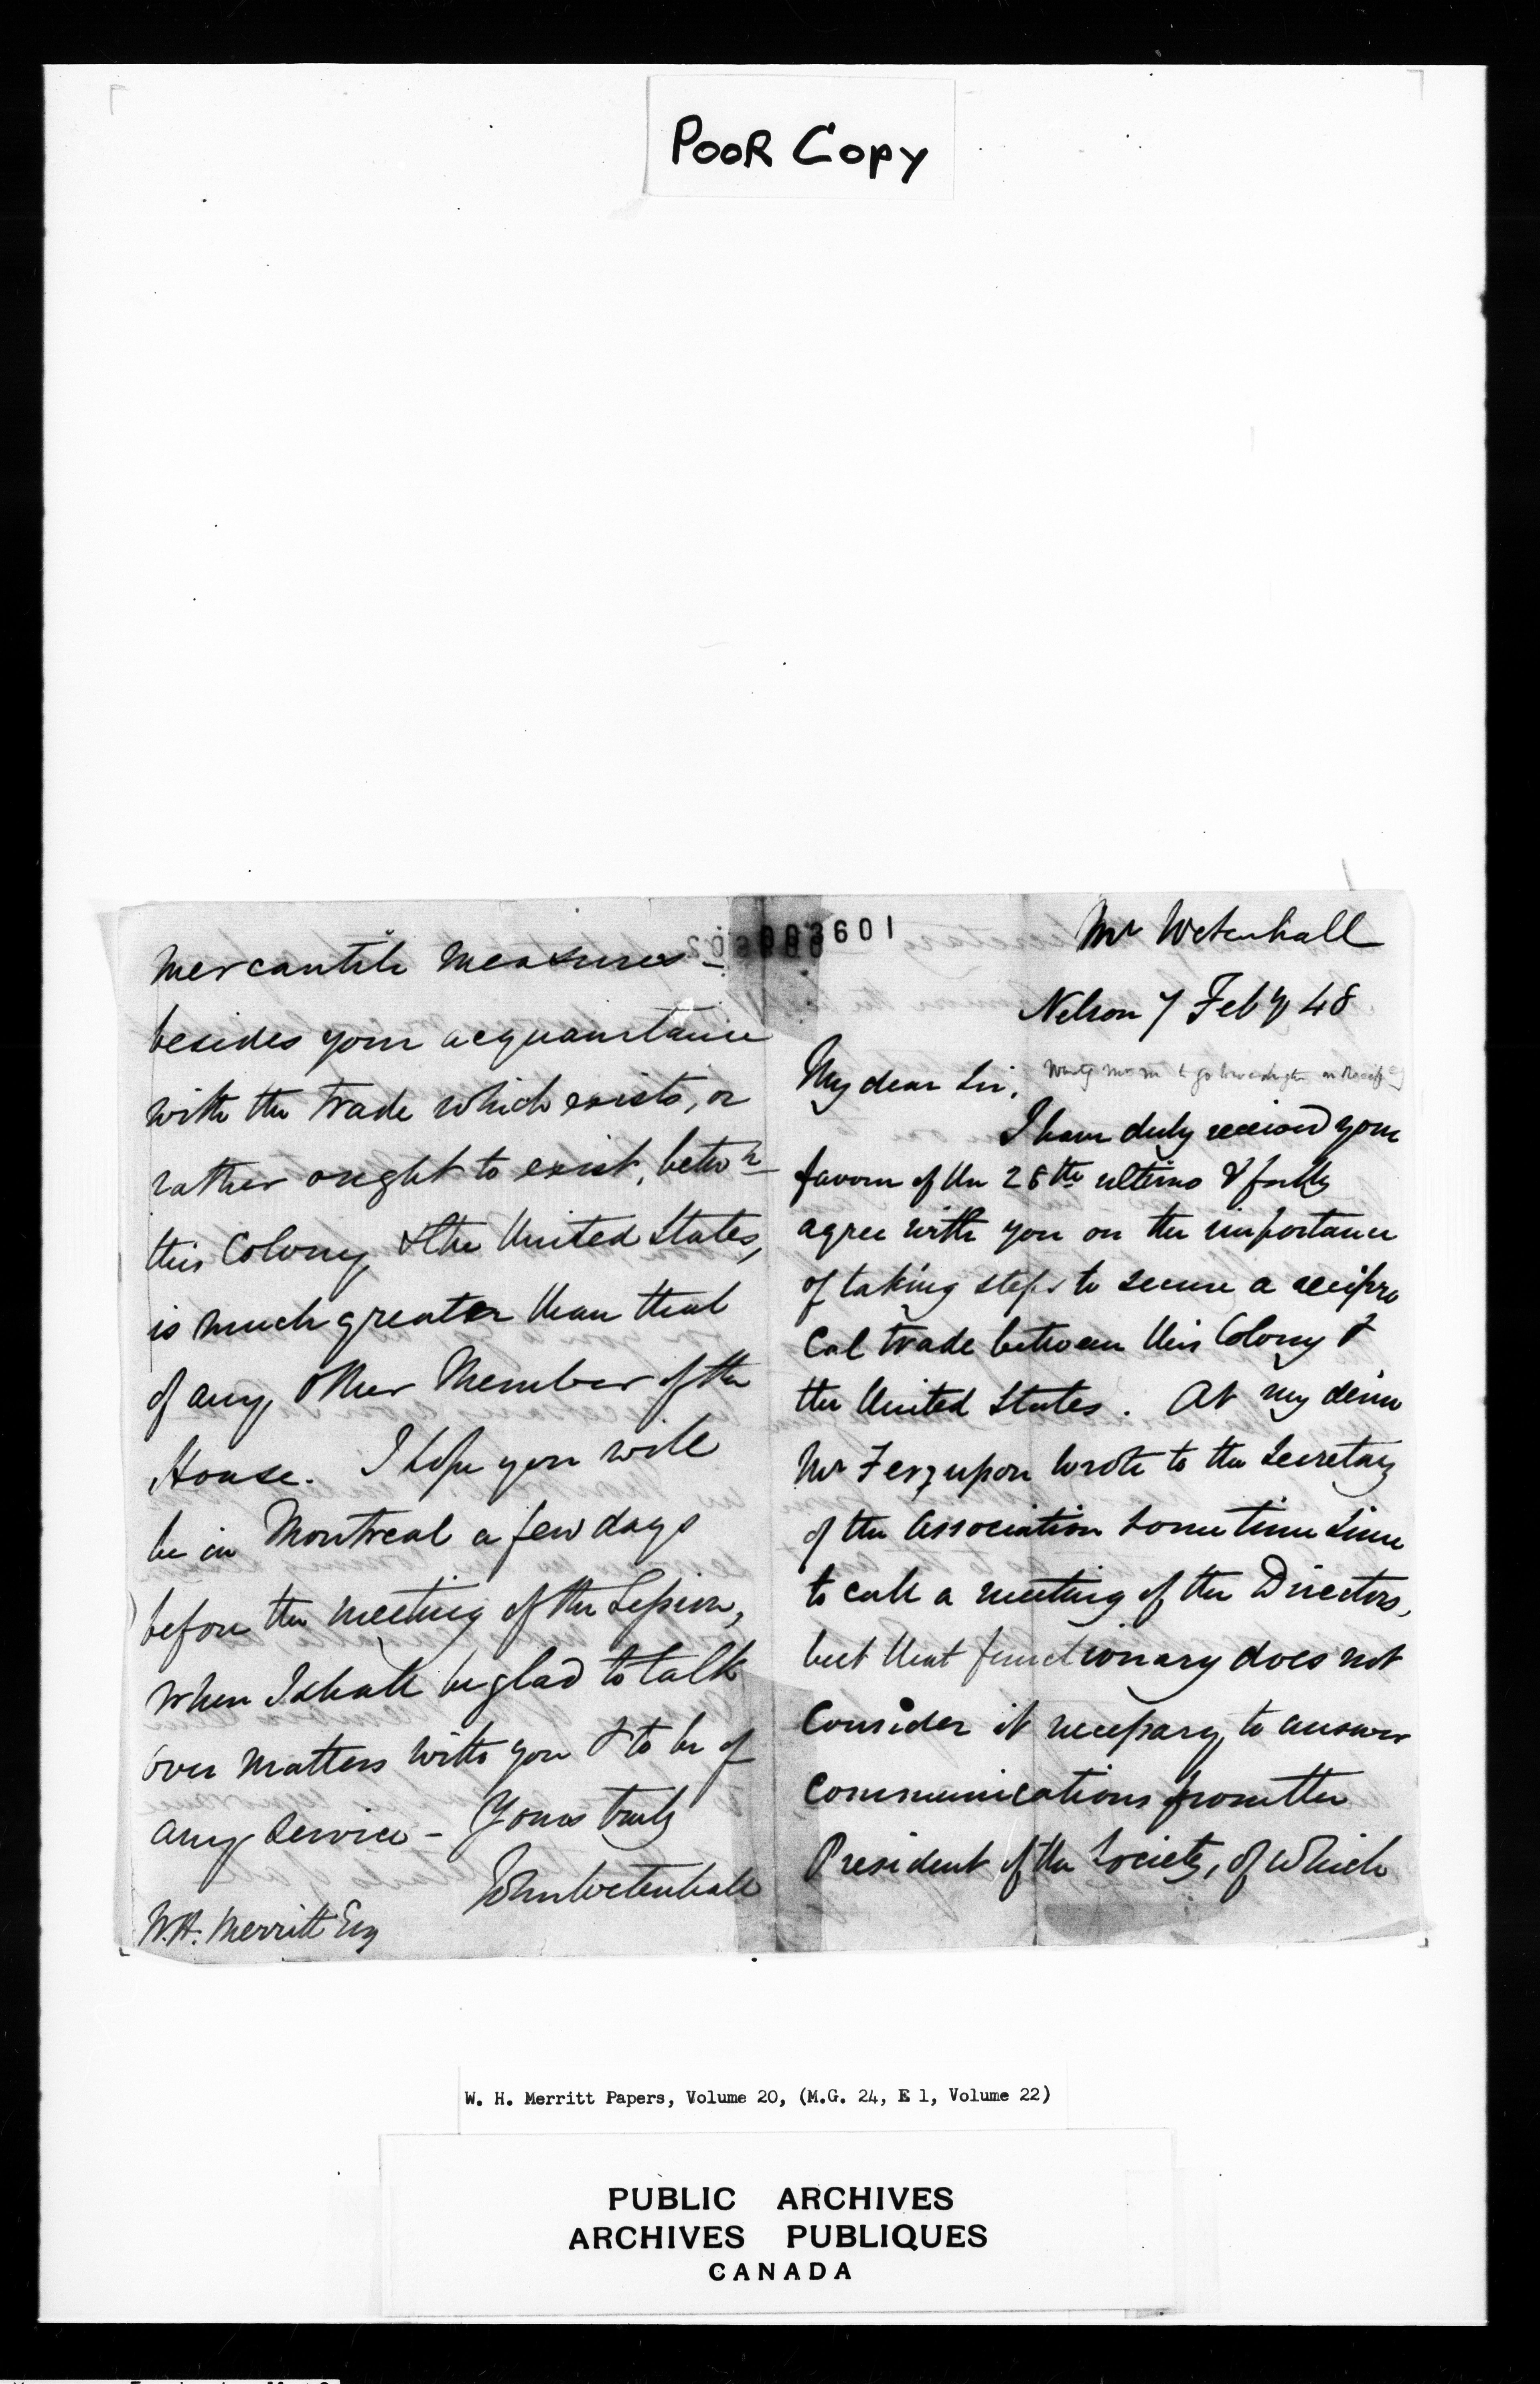 POOR COPY
003601
Mr Wetenhall
Nelson 7 Feby 48
My dear Sir,
to go
I have duly received your
favour of the 28th ultimo & fully
agree with you on the importance
of taking steps to secure a recipro
cal trade between this Colony &
the United States. At my desire
Mr Fergusson wrote to the Secretary
of the Association some time since
to call a meeting of the Directors,
but that functionary does not
consider it necessary to answer
communications from the
President of the Society, of which
mercantile measures -
besides your acquaintance
with the trade which exists, or
rather ought to exist, betwn
this Colony & the United States,
is much greater than that
of any other Member of the
House. I hope you will
be in Montreal a few days
before the meeting of the Session,
when I shall be glad to talk
over matters with you & to be of
any service - Yours truly
John Wetenhall
W.H. Merritt Esq
W. H. Merritt Papers, Volume 20, (M.G. 24, E 1, Volume 22)
PUBLIC ARCHIVES
ARCHIVES PUBLIQUES
CANADA